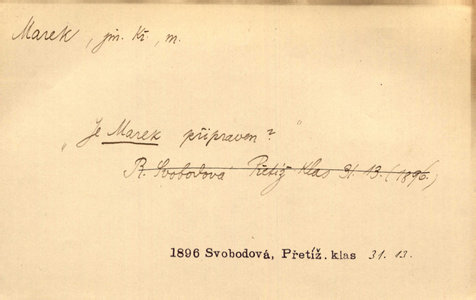 Marek, jm. kř., m.
„Je Marek připraven?"
R. Svobodová Přetíž. klas 31. 13. (1896)
1896 Svobodová, Přetíž. klas 31. 13.